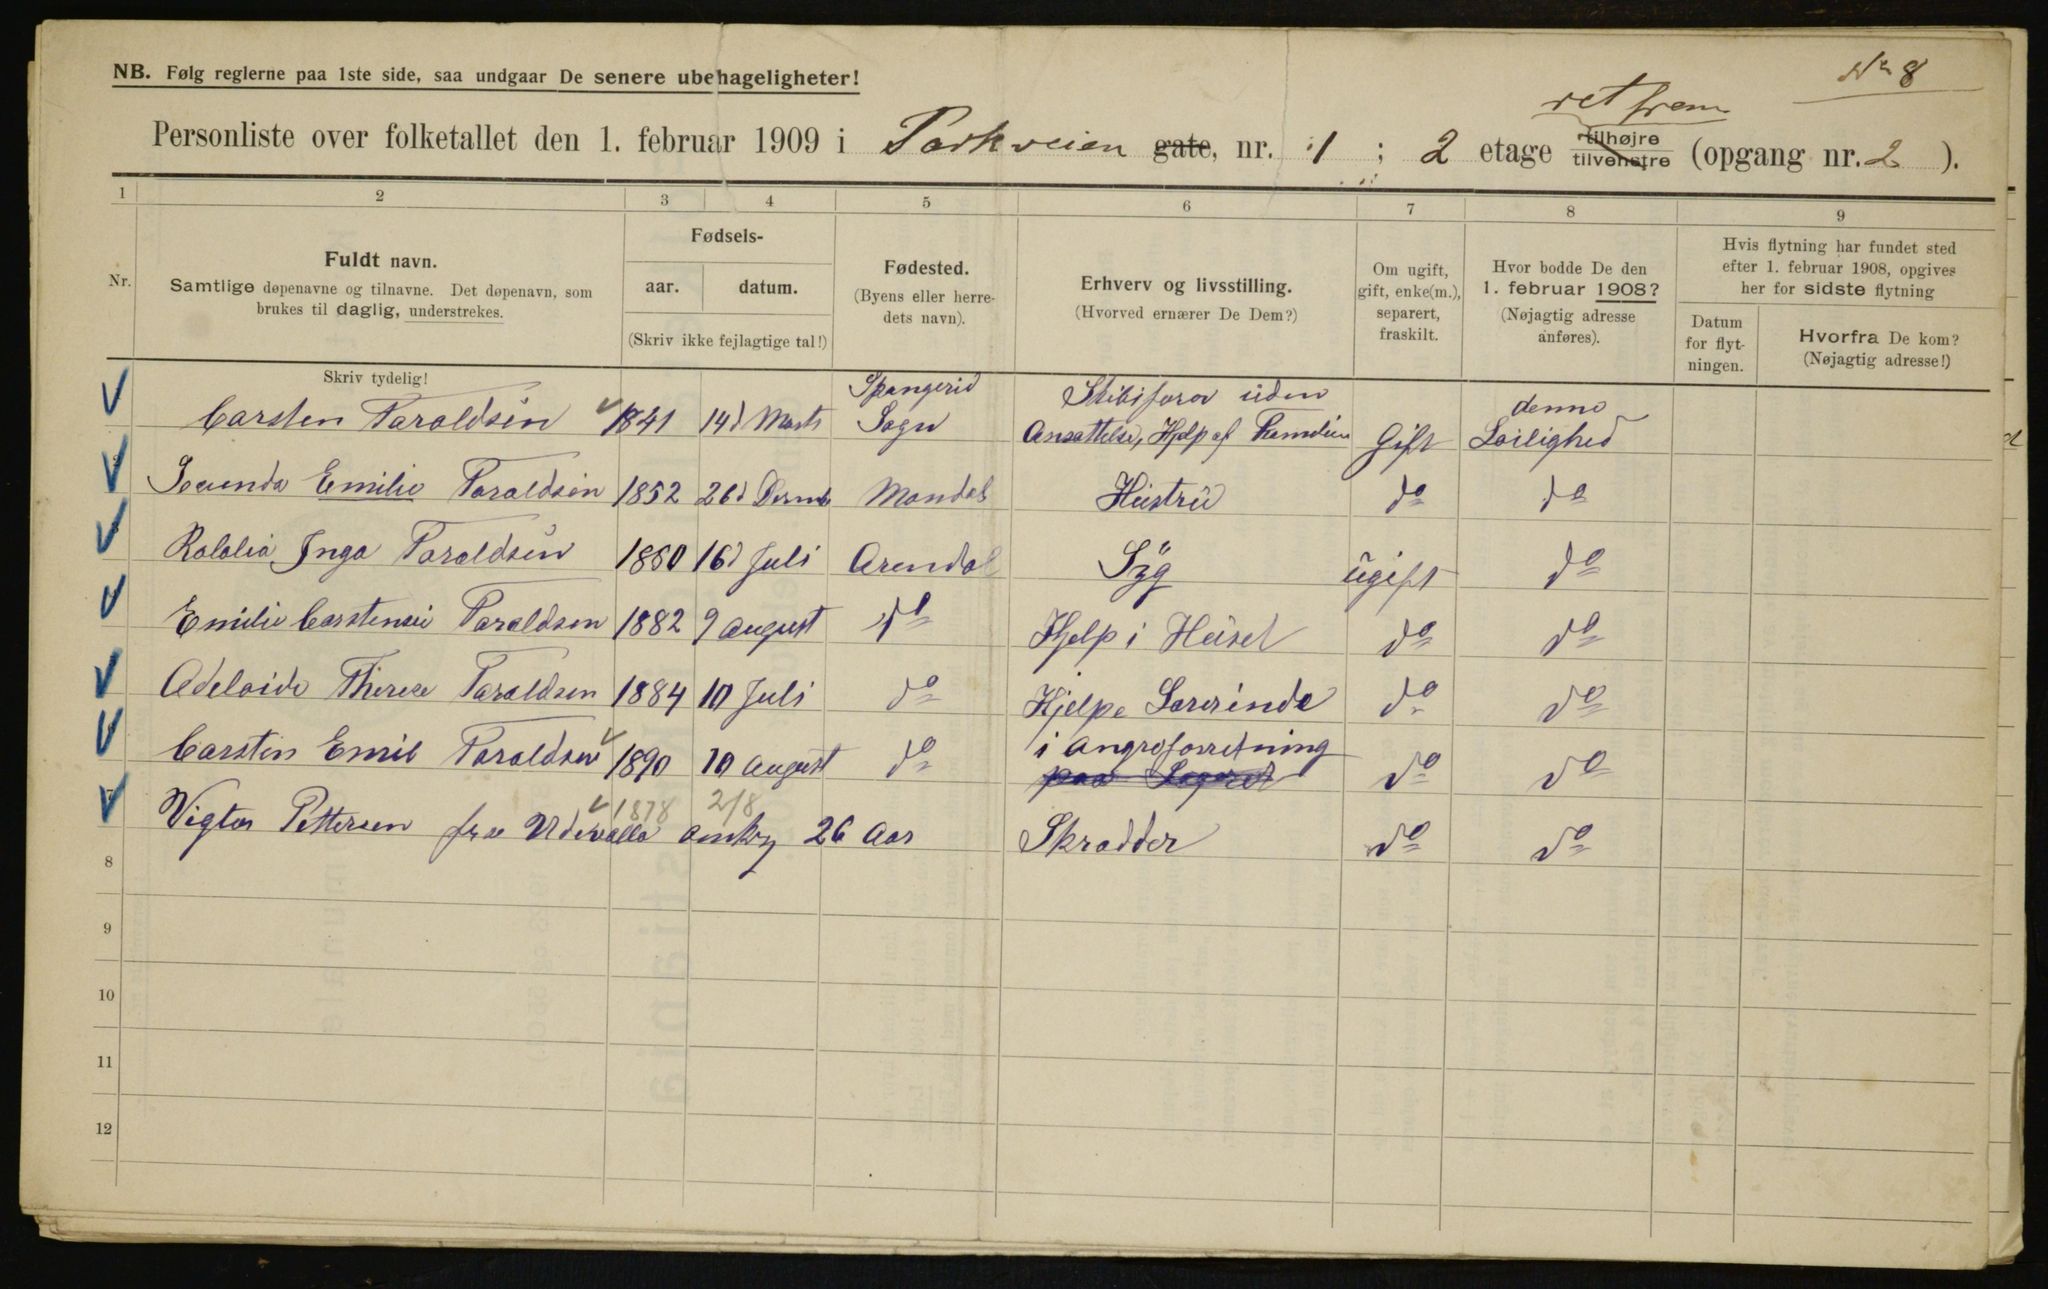 No 8
NB. Følg reglerne paa 1ste side, saa undgaar De senere ubehageligheter!
ret frem
Personliste over folketallet den 1. februar 1909 i Parkveien gate, nr. 1 ; 2 etage tilhøjre tilvenstre (opgang nr. 2 ).
1 2 3 4 5 6 7 8 9
Nr.
Fuldt navn.
Samtlige døpenavne og tilnavne. Det døpenavn, som
brukes til daglig, understrekes.
Skriv tydelig!
Fødsels-
aar. datum.
(Skriv ikke fejlagtige tal!)
Fødested.
(Byens eller herre-
dets navn).
Erhverv og livsstilling.
(Hvorved ernærer De Dem?)
Om ugift,
gift, enke(m.),
separert,
fraskilt.
Hvor bodde De den
1. februar 1908?
(Nøjagtig adresse
anføres).
Hvis flytning har fundet sted
efter 1. februar 1908, opgives
her for sidste flytning
Datum
for flyt-
ningen.
Hvorfra De kom?
(Nøjagtig adresse!)
Carsten Taraldsen 1841 14d Marts Spangerid Sogn uden Ansattelse, Hjelp af Familien Gift denne Leilighed
Emilie Taraldsen 1852 26d Mandal Hustru do do
Inga Taraldsen 1860 16d Juli Arendal Syg ugift do
Emilie Taraldsen 1882 9 august do Hjelp i Huset do do
Adelaide Therese Taraldsen 1884 10 Juli do Hjelpe Lærerinde do do
Carsten Emil Taraldsen 1890 10 august do i Angroforretning paa Lageret do do
7 Vigtor Pettersen fra Udevalla omkrg 26 Aar 1878 2/8 Skrædder do do
8
9
10
11
12